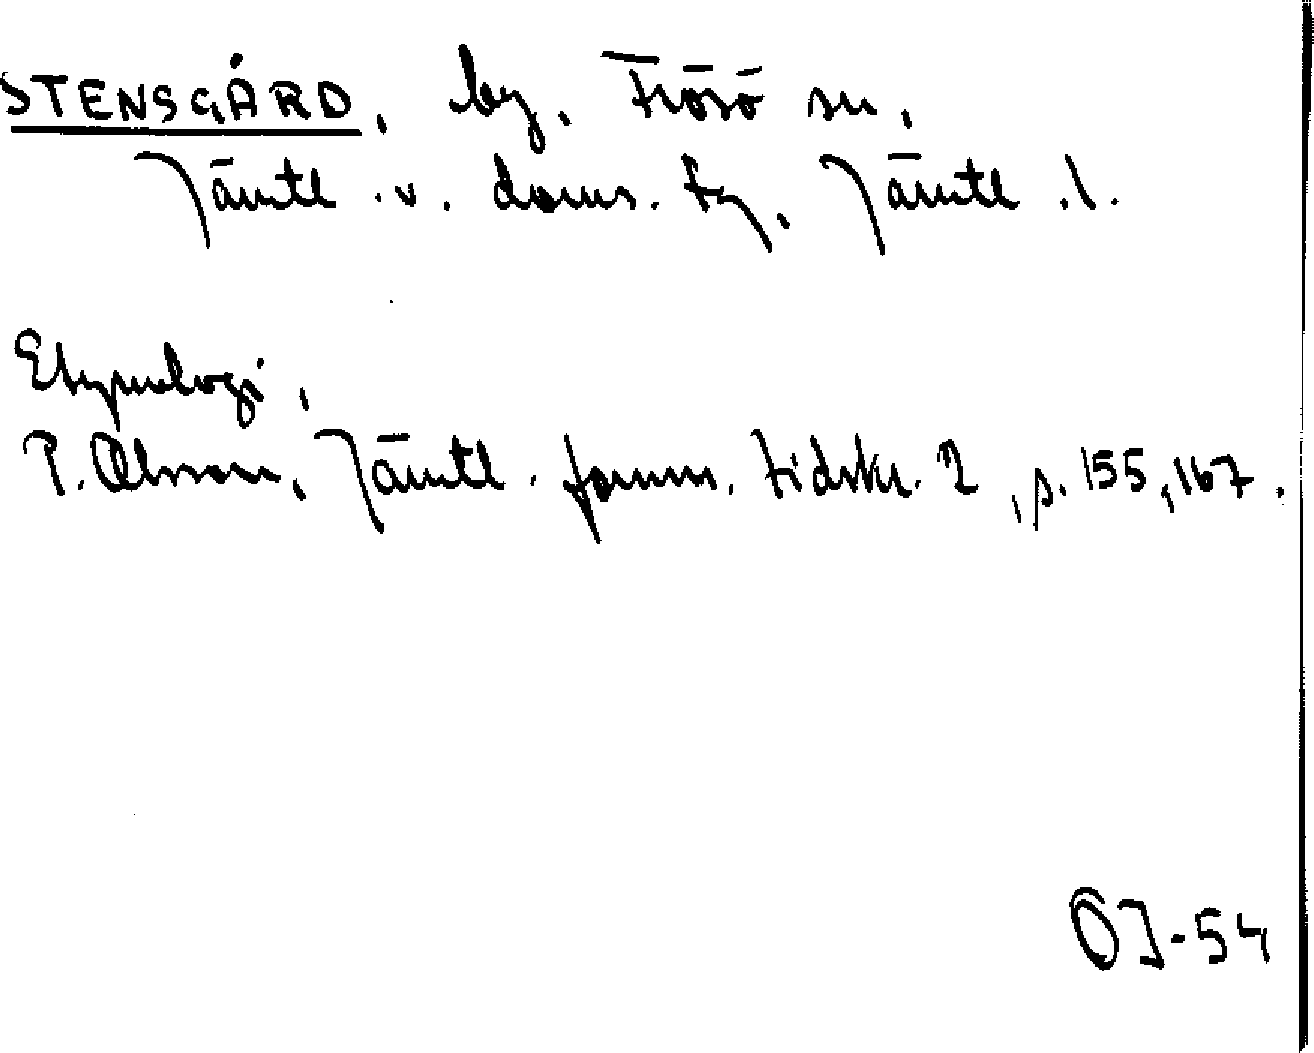 STENSGÅRD, by, Frösö sn,
Jämtl. v. doms. tg, Jämtl. l.
Etymologi,
P. Olsson, Jämtl. fornm. tidskr. 2, s. 155, 167.
ÖJ-54